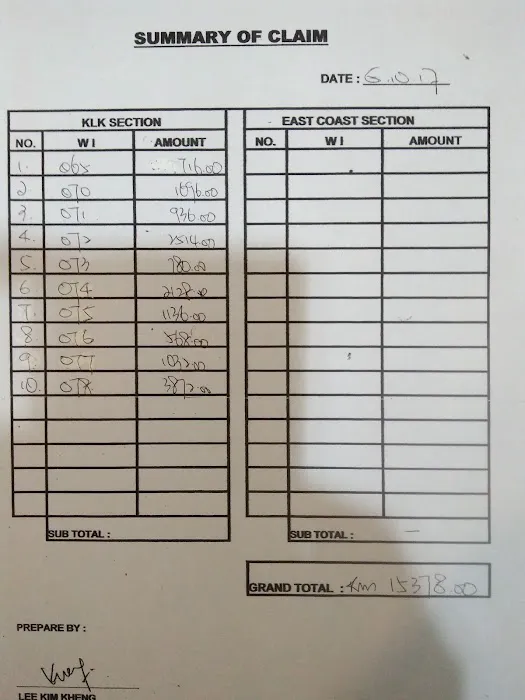 SUMMARY OF CLAIM
DATE : 6.10.17
KLK SECTION EAST COAST SECTION
NO. W I AMOUNT NO. W I AMOUNT
1. 065 716.00
2. 070 1696.00
3. 071 936.00
4. 072 2514.00
5. 073 780.00
6. 074 2128.00
7. 075 1136.00
8. 076 568.00
9. 077 1032.00
10. 078 3872.00
SUB TOTAL : SUB TOTAL : —
GRAND TOTAL : Rm 15378.00
PREPARE BY :
LEE KIM KHENG